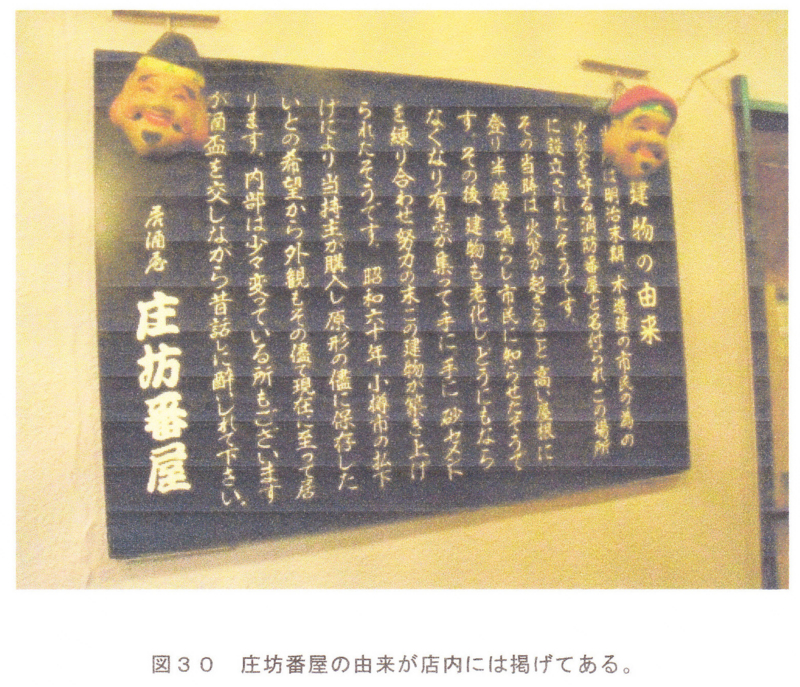 建物の由来
は明治末期 木造建の市民の為の
火災を守る消防番屋と名付られ、この場所
に設立されたそうです。
その当時は火災が起きると 高い屋根に
登り半鐘を鳴らし市民に知らせたそうで
す。その後 建物も老化し どうにもなら
なくなり有志が集って手に手に 砂セメント
を練り合わせ努力の末この建物が築き上げ
られたそうです。 昭和六十年 小樽市の払下
けにより当持主が購入し原形の儘に保存した
いとの希望から外観もその儘で現在に至って居
ります。内部は少々変っている所もございます
が酒盃を交しながら昔話しに酔しれて下さい。
居酒屋 庄坊番屋
図30 庄坊番屋の由来が店内には掲げてある。